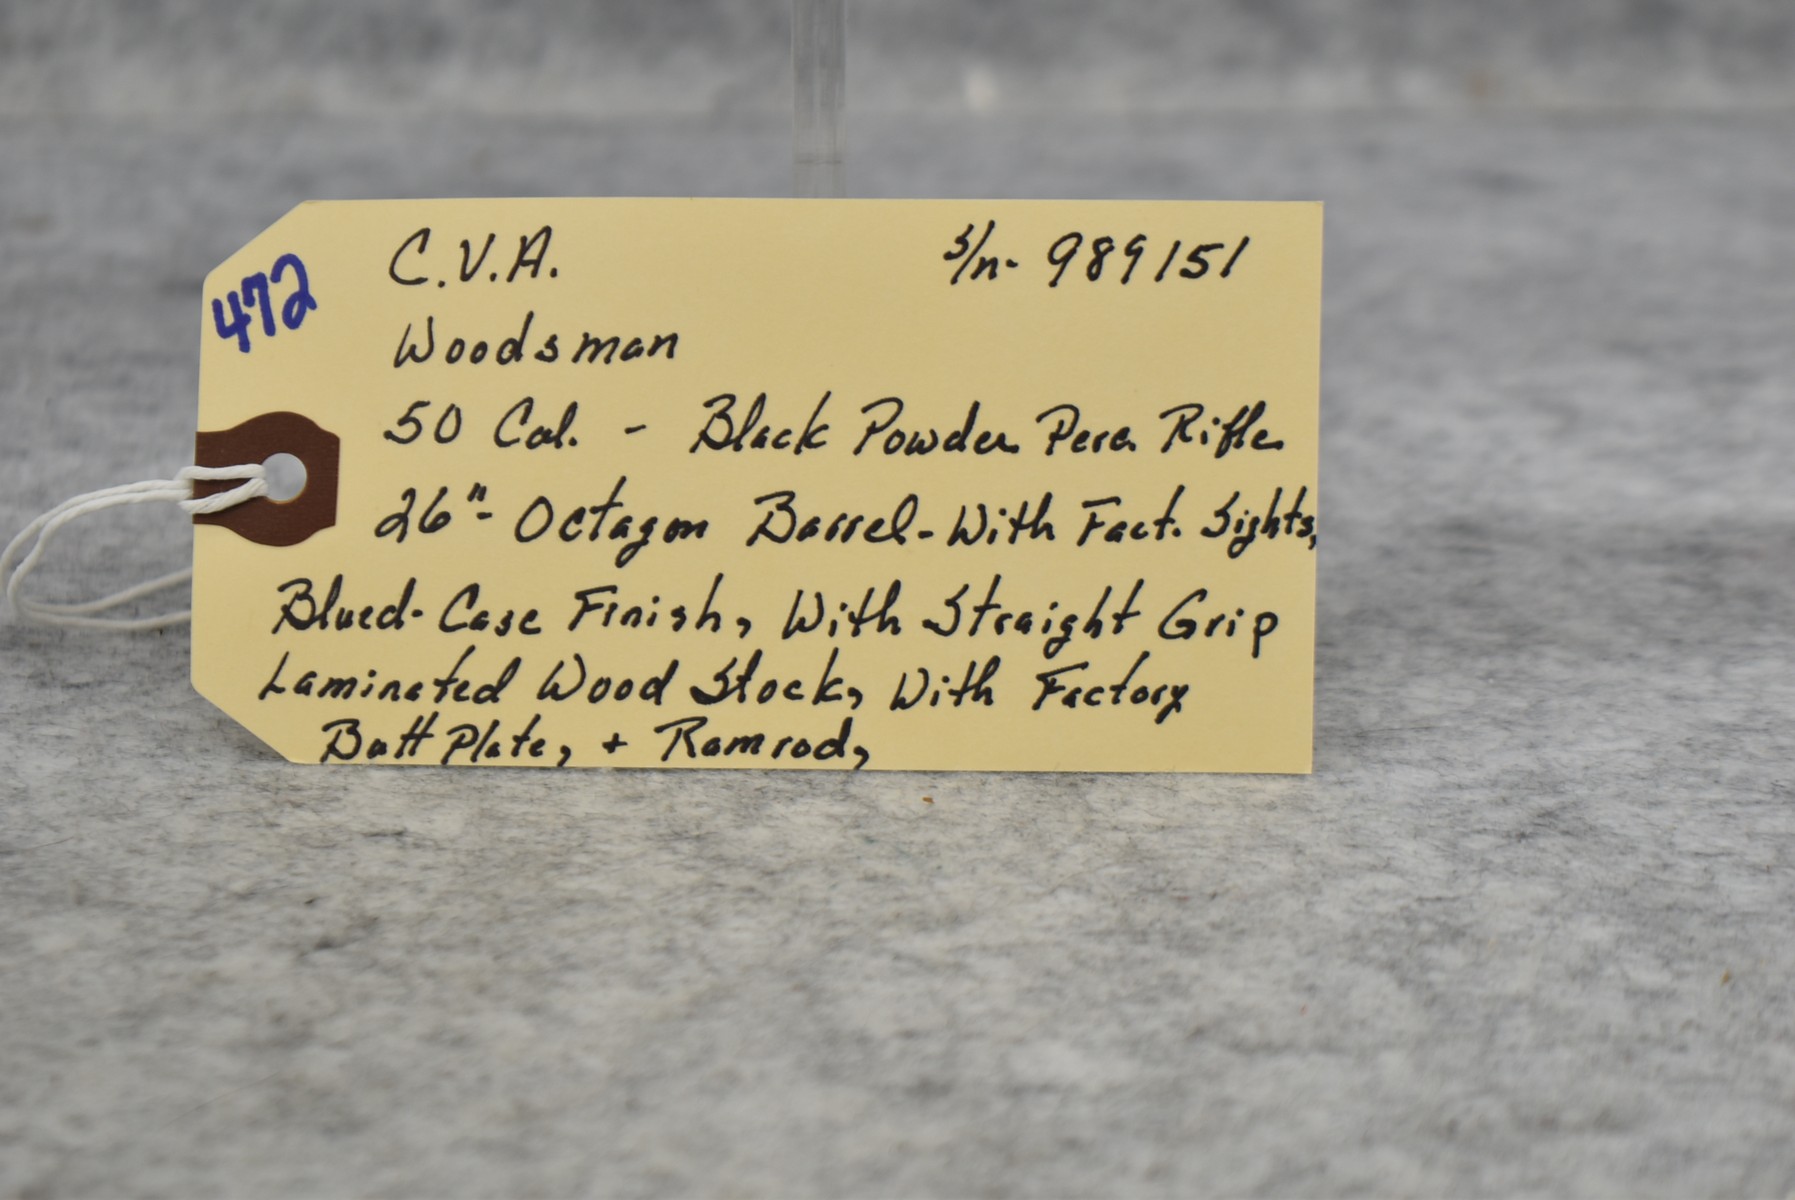 472
C.V.A. S/n- 989151
Woodsman
50 Cal. - Black Powder Perc. Rifle
26"- Octagon Barrel-With Fact. Sights,
Blued-Case Finish, With Straight Grip
Laminated Wood Stock, With Factory
Butt Plate, + Ramrod,